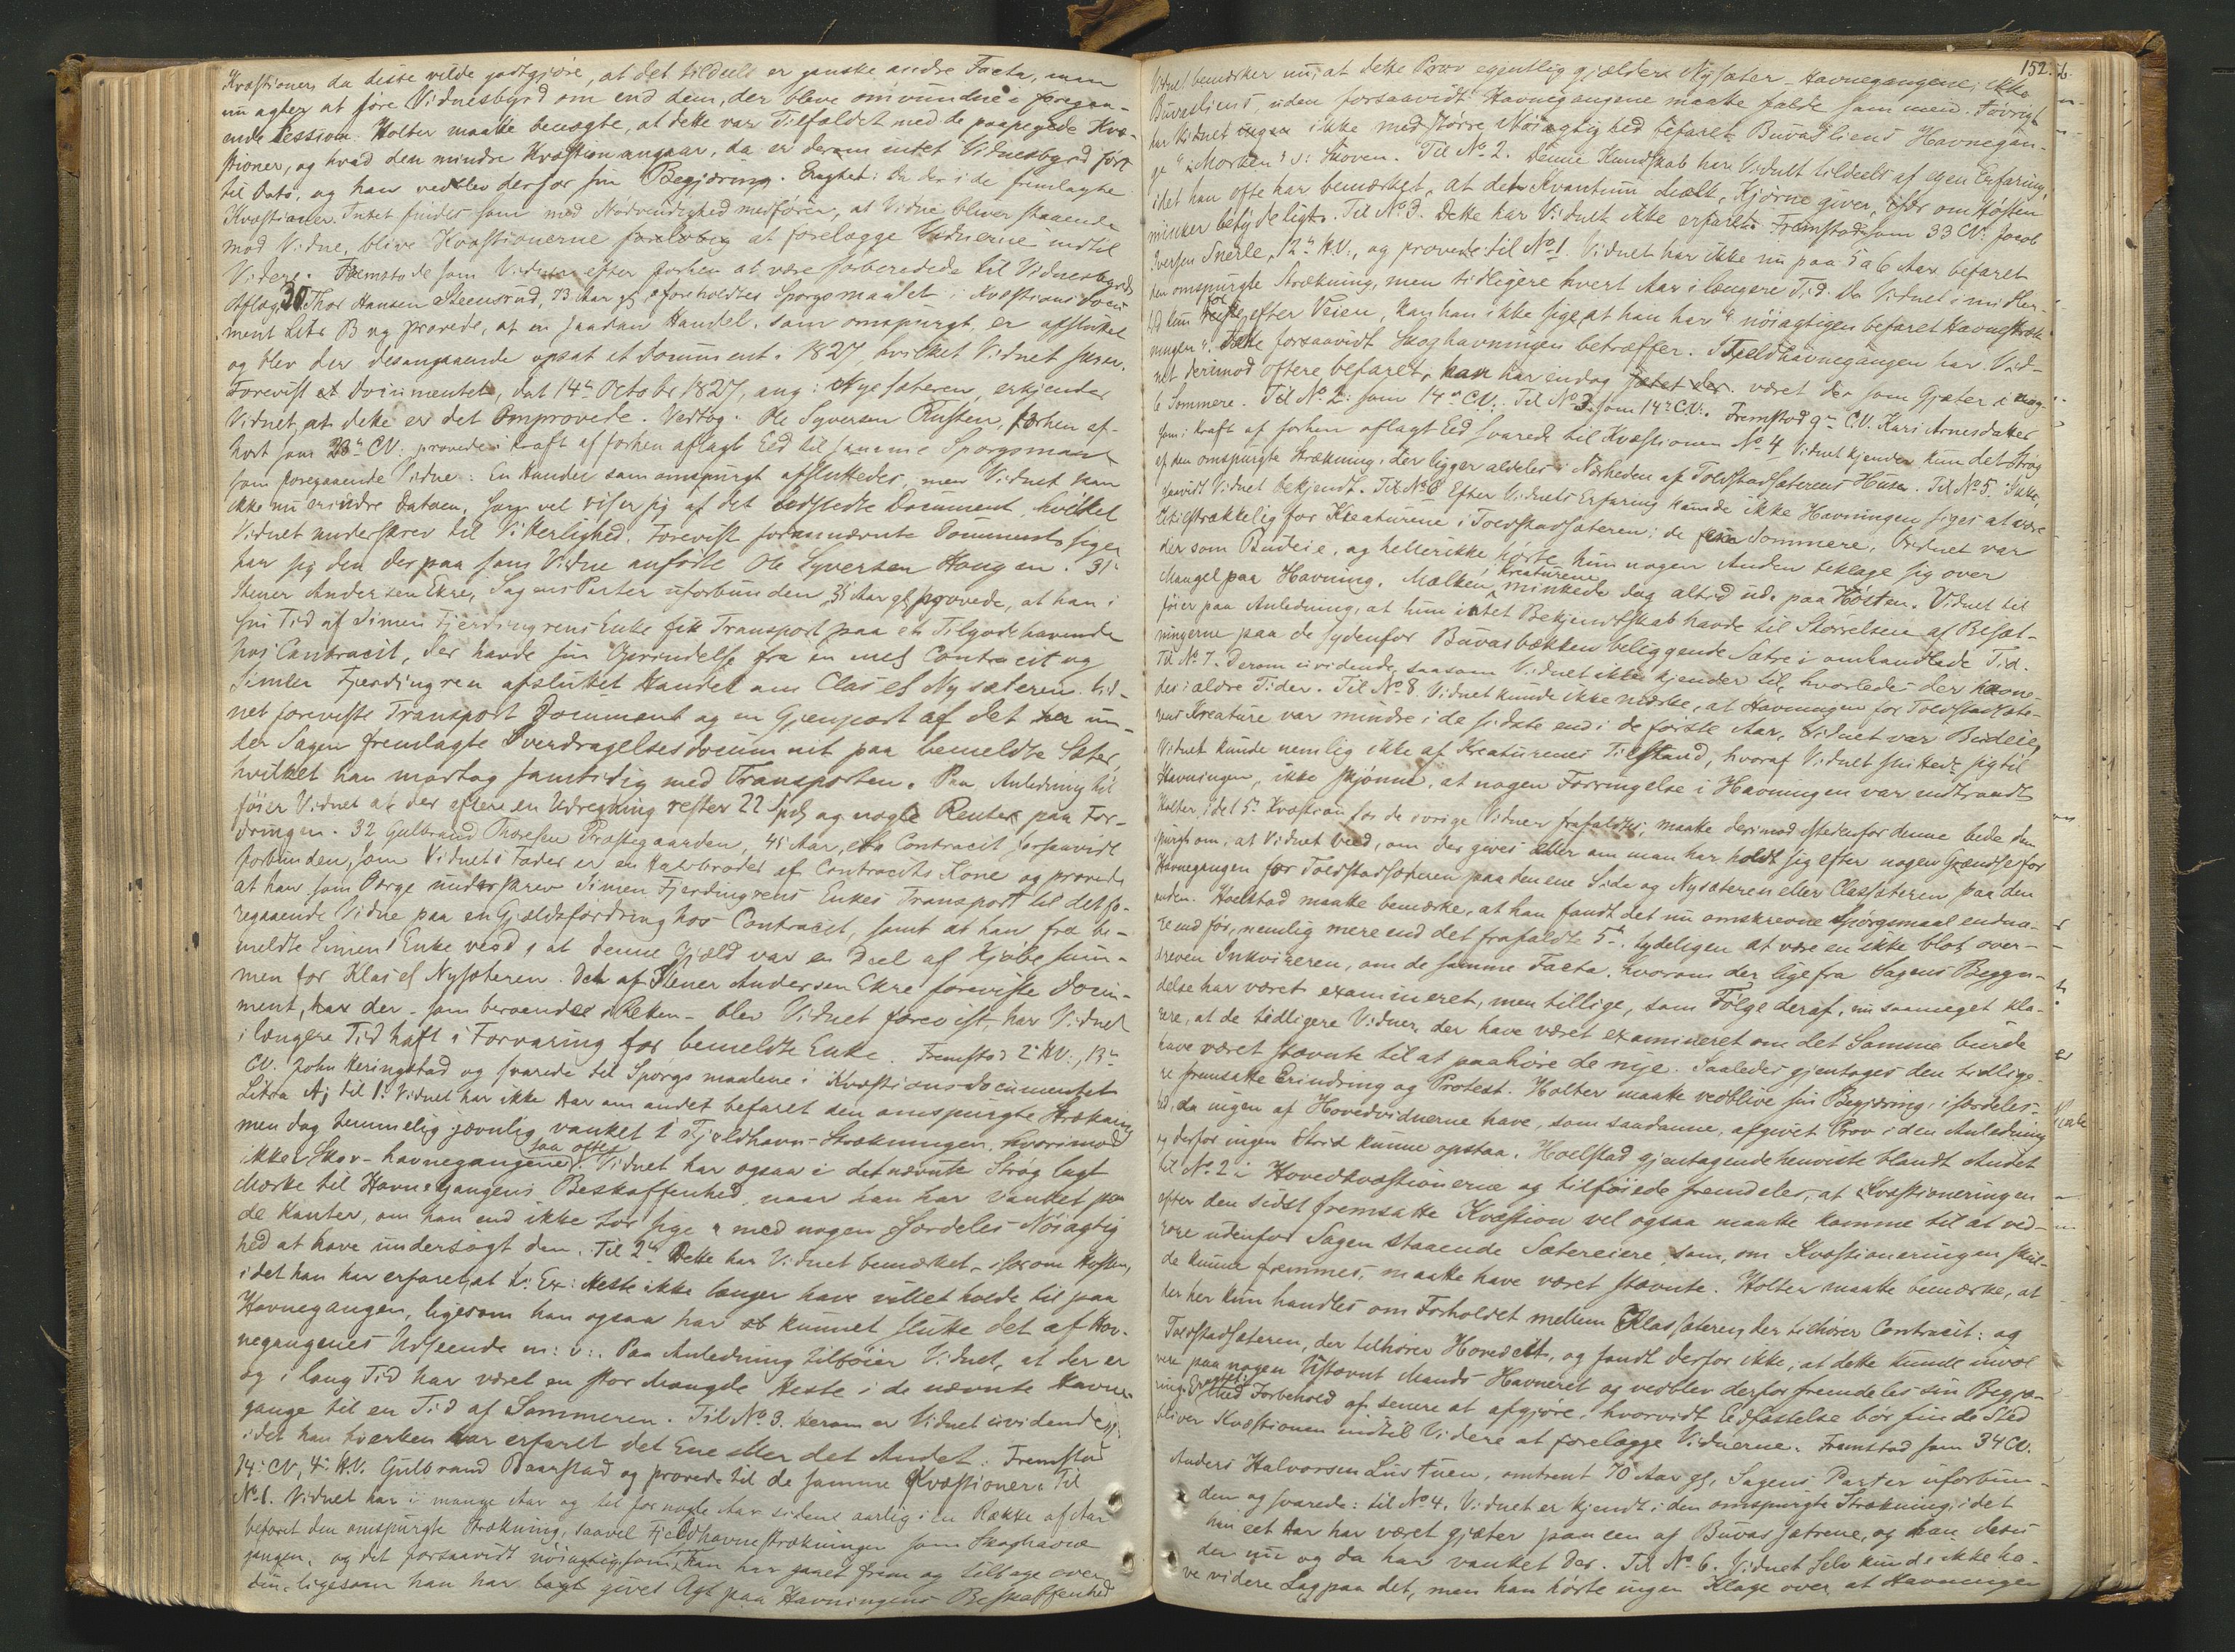 Kvæstioner, da disse vilde godtgjöre, at det tildeels er ganske andre Facta, man
nu agter at före Vidnesbyrd om end dem, der bleve omvundne i foregaa-
ende Session. Holter maatte benægte, at dette var Tilfældet med de paapegede Kvæ-
stioner, og hvad den mindre Kvæstion angaar, da er derom intet Vidnesbyrd fört
til Dato, og han vedblev derfor sin Begjæring. Eragtet: Da der i de fremlagte
Kvæstioner Intet findes som med Nödvendighed medförer, at Vidne bliver staaende
mod Vidne, blive Kvæstionerne at forelægge Vidnerne indtil
Videre. Fremstode som Vidner efter forhen at være forberedede til Vidnesbyrds
Aflæg: 30 Thor Hansen Steensrud, 73 Aar gl, foreholdtes Spörgsmaalet i Kvæstionsdocu
ment Litr B og provede, at en saadan Handel, som omspurgt er afsluttet
og blev der desangaaende opsat et Document i 1827, hvilket Vidnet skrev.
Forevist Documentet, dat 14de Octobr 1827, ang: Nysæteren, erkjender
Vidnet, at dette er det Omprovede. Vedtog. Ole Syversen Rusten, forhen af-
hört som 23de CV: provede i Kraft af forhen aflagt Eed til samme Spörgsmaal
som foregaaende Vidne: En Handel som omspurgt afsluttedes, men Vidnet kan
ikke nu erindre Datoen, som vel viser sig af det udstedte Document, hvilket
Vidnet underskrev til Vitterlighed. Forevist fornævnte Document siger
han sig den derpaa som Vidne anförte Ole Syversen Haugen. 31te
Stener Andersen Ekre, Sagens Parter uforbunden, 31 Aar gl, provede, at han i
sin Tid af Simen Fjerdingrens Enke fik Transport paa et Tilgodehavende
hos Contracit, der havde sin Oprindelse fra en mel Contracit og
Simen Fjerdingren afsluttet Handel om Clas el Nysæteren. Vid-
net foreviste Transport Document og en Gjenpart af det un-
der Sagen fremlagte Overdragelsesdocument paa bemeldte Sæter,
hvilket han modtog samtidig med Transporten. Paa Anledning til
föier Vidnet at der efter en Udregning rester 22 Spd og nogle Renter paa For-
dringen. 32 Gulbrand Thoresen Præstegaarden, 45 Aar, Contracit forsaavidt
forbunden, som Vidnets Fader er en Halvbroder af Contracits Kone og provede
at han som Værge underskrev Simen Fjerdingrens Enkes Transport til det fo-
regaaende Vidne paa en Gjældsfordring hos Contracit, samt at han fra be-
meldte Simens Enke veed, at denne Gjæld var en Deel af Kjöbesum-
men for Klas el Nysæteren. Det af Stener Andersen Ekre foreviste Docu-
ment, har der - som beroende i Retten - blev Vidnet forevist, har Vidnet
i længere Tid haft i Forvaring for bemeldte Enke. Fremstod 2 HV:, 13de
CV. John Heringstad og svarede til Spörgsmaalene i Kvæstionsdocumentet
Litra A; til 1: Vidnet har ikke Aar om andet befaret den omspurgte Strækning
men dog temmelig jævnlig vanket i Fjeldhavn-Strækningen, hvorimod
ikke Skov-havnegangene saa ofte. Vidnet har ogsaa i det nævnte Strög lagt
Mærke til Havnegangens Beskaffenhed naar han har vanket paa
de Kanter, om han end ikke tör sige med nogen særdeles Nöiagtig
hed at have undersögt den. Til 2de Dette har Vidnet bemærket, især om Hösten,
idet han har erfaret, at t: Ex: Heste ikke længer have villet holde til paa
Havnegangen, ligesom han ogsaa har kunnet slutte det af Hav-
negangenes Udseende m: v:. Paa Anledning tilföier Vidnet, at der er
og i lang Tid har været en stor Mængde Heste i de nævnte Havne-
gange til en Tid af Sommeren. Til No. 3. Herom er Vidnet uvidende
idet han hverken har erfaret det Ene eller det Andet. Fremstod
14: CV, 4: HV. Gulbrand Baarstad og provede til de samme Kvæstioner: Til
No. 1. Vidnet har i mange Aar og til for nogle Aar siden aarlig i en Række af Aar
befaret den omspurgte Strækning, saavel Fjeldhavnestrækningen som Skoghavne
gangen, og det forsaavidt nöiagtig, som han har gaaet frem og tilbage over
den ligesom han har givet Agt paa Havningens Beskaffenhed
152.
Vidnet bemærker nu, at dette Prov egentlig gjælder Nysæter-Havnegangene, ikke
Buvasliens, uden forsaavidt Havnegangene maatte falde sammen. Forövrigt
har Vidnet ikke med större Nöiagtighed befaret Buvasliens Havnegan-
ge "i Morken" o: Skoven. Til No. 2. Denne Kundskab har Vidnet tildeels af egen Erfaring,
idet han ofte har bemærket, at det Kvantum Melk, Kjörne giver, især om Hösten
minker betydeligt. Til No. 3. Dette har Vidnet ikke erfaret. Fremstod som 33 CV: Jacob
Iversen Snerle, 12te HV:, og provede til No. 1. Vidnet har ikke nu paa 5 a 6 Aar befaret
den omspurgte Strækning, men tidligere hvert Aar i længere Tid. Da Vidnet imidler-
tid kun for efter Veien, kan han ikke sige, at han har "nöiagtigen befaret Havnestræk
ningen". Dette forsaavidt Skoghavningen betræffer. I Fjeldhavnegangen har Vid-
net derimod oftere befaret, han har endog været der som Gjæter i nog-
le Sommere. Til No. 2: som 14de CV:. Til No. 3. som 14de CV:. Fremstod 9de CV. Kari Arnesdatter
som i Kraft af forhen aflagt Eed svarede til Kvæstionen No. 4 Vidnet kjender kun det Strög
af den omspurgte Strækning, der ligger aldeles i Nærheden af Toldstadsæterens Huse. Til No. 5. Ikke,
saavidt Vidnet bekjendt. Til No. 6 Efter Vidnets Erfaring kunde ikke Havningen siges at være
utilstrækkelig for Kreaturene i Toldstadsæteren i de Sommere, Vidnet var
der som Budeie, og heller ikke hörte hun nogen Anden beklage sig over
Mangel paa Havning. Melken i Kreaturene minkede dog altid ud paa Hösten. Vidnet til
föier paa Anledning, at hun intet Bekjendtskab havde til Störrelsen af Besæt-
ningerne paa de sydenfor Buvasbækken beliggende Sætre i omhandlede Tid.
Til No. 7. Derom uvidende, saasom Vidnet ikke kjender til, hvorledes der havne-
des i ældre Tider. Til No. 8. Vidnet kunde ikke mærke, at Havningen for Toldstadsæte-
rens Kreature var mindre i de sidste end i de förste Aar, Vidnet var Budeie,
Vidnet kunde nemlig ikke af Kreaturenes Tilstand, hvoraf Vidnet sluttede sig til
Havningen, ikke skjönne, at nogen Forringelse i Havningen var indtraadt.
Holter, idet 5te Kvæstion for de övrige Vidner frafaldtes, maatte derimod istedenfor denne bede dem
spurgt om, at Vidnet veed, om der gives eller om man har holdt sig efter nogen Grændse for
Havnegangen for Toldstadsæteren paa den ene Side og Nysæteren eller Classæteren paa den
anden. Hoelstad maatte bemærke, at han fandt det nu omskrevne Spörgsmaal endnu me-
re end för, nemlig mere end det frafaldte 5te, tydeligen at være en ikke blot over-
dreven Inkvireren, om de samme Facta, hvorom der lige fra Sagens Begyn-
delse har været examineret, men tillige, som Fölge deraf, nu saameget kla-
rere, at de tidligere Vidner, der have været examineret om det Samme burde
have været stævnte til at paahöre de nye. Saaledes gjentages den tidlige-
re fremsatte Erindring og Protest. Holter maatte vedblive sin Begjæring, i særdeles-
hed, da ingen af Hovedvidnerne have, som saadanne, afgivet Prov i den Anledning
og derfor ingen Strid kunne opstaa. Hoelstad gjentagende henviste blandt Andet
til No. 2 i Hovedkvæstionerne og tilföiede fremdeles, at Kvæstioneringen
efter den sidst fremsatte Kvæstion vel ogsaa maatte komme til at ved-
röre udenfor Sagen staaende Sætereiere, som, om Kvæstioneringen skul-
de kunne fremmes, maatte have været stævnte. Holter maatte bemærke, at
der her kun handles om Forholdet mellem Klassæteren, der tilhörer Contracit: og
Toldstadsæteren, der tilhörer Hovedcit, og fandt derfor ikke, at dette kunde invol
vere paa nogen Ustævnt Mands Havneret og vedblev derfor fremdeles sin Begjæ-
ring. Eragtet: Med Forbehold af senere at afgjöre, hvorvidt Eedfæstelse bör finde Sted
bliver Kvæstionen indtil Videre at forelægge Vidnerne. Fremstod som 34 CV.
Anders Halvorsen Lustuen, omtrent 70 Aar gl, Sagens Parter uforbun-
den og svarede: til No. 4. Vidnet er kjendt i den omspurgte Strækning, idet
han eet Aar har været gjæter paa een af Buvassætrene, og han desu
den nu og da har vanket der. Til No. 6. Vidnet selv kunde ikke ha-
ve videre Lag paa det, men han hörte ingen Klage over, at Havningen